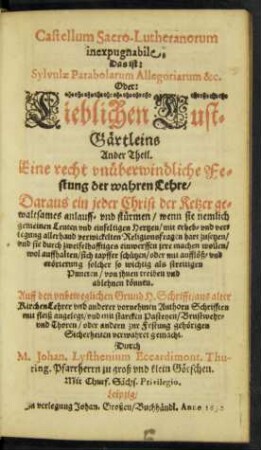 Castellum Sacro-Lutheranorum
inexpugnabile,
Das ist:
Sylvulæ Parabolarum Allegoriarum &c.
Oder:
Lieblichen Lust-
Gärtleins
Ander Theil.
Eine recht vnüberwindliche Fe-
stung der wahren Lehre/
Daraus ein jeder Christ der Ketzer ge-
waltsames anlauff- vnd stürmen / wenn sie nemlich
gemeinen Leuten vnd einfeltigen Hertzen / mit erheb- vnd vor-
legung allerhand verwickelten Religionsfragen hart zusetzen/
vnd sie durch zweiffelhafftiges einwerffen irre machen wollen/
wol auffhalten / sich tapffer schützen / oder mit aufflöß- vnd
erörterung solcher so wichtig als streitigen
Puncten / von ihnen treiben vnd
ablehnen können.
Auff den vnbeweglichen Grund H. Schrifft / aus alter
KirchenLehrer vnd anderer vornehmen Authorn Schrifften
mit fleiß angelegt / vnd mit starcken Pasteyen / Brustwehr-
vnd Thoren / oder andern zur Festung gehörigen
Sicherheiten verwahret gemacht.
Durch
M. Johan. Lysthenium Eccardimont. Thu-
ring. Pfarrherrn zu groß vnd klein Götschen.
Mit Churf. Sächs. Privilegio.
Leipzig/
In verlegung Johan. Großen / Buchhändl. Anno